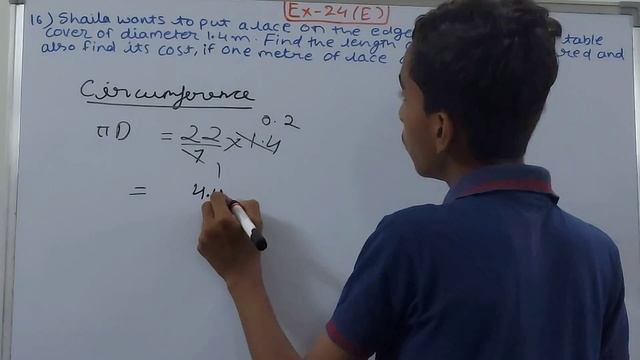 Ex-24(E)
16) Shaila wants to put a lace on the edge
cover of diameter 1.4m. Find the length table
also find its cost, if one metre of lace red and
Circumference
πD = 22/7 x 1.4 0.2
1
= 4.4